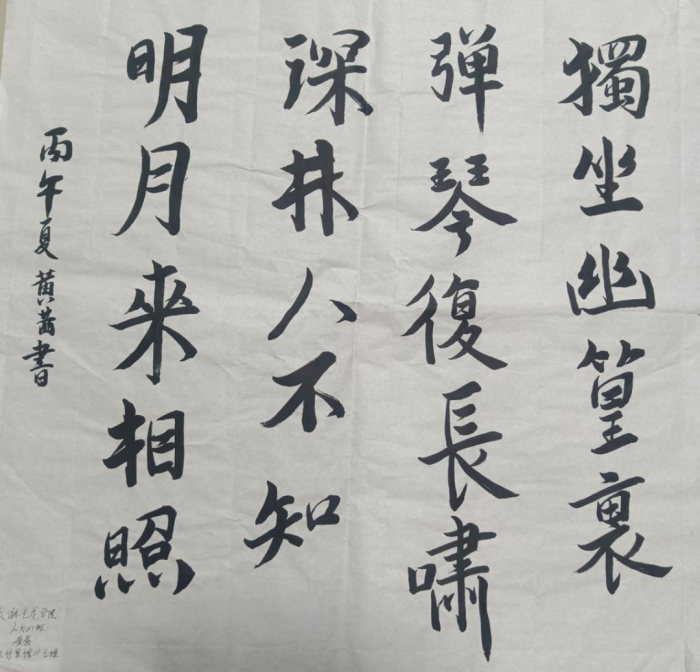 獨坐幽篁裏
弹琴復長嘯
深林人不知
明月來相照
丙午夏黄茜書